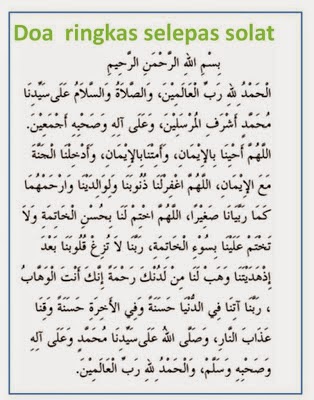 Doa ringkas selepas solat
بِسْمِ اللهِ الرَّحْمَنِ الرَّحِيمِ
الْحَمْدُ لِلهِ رَبِّ الْعَالَمِينَ، وَالصَّلَاةُ وَالسَّلَامُ عَلَى سَيِّدِنَا
مُحَمَّدٍ أَشْرَفِ الْمُرْسَلِينَ، وَعَلَى آلِهِ وَصَحْبِهِ أَجْمَعِينَ.
اللَّهُمَّ أَحْيِنَا بِالْإِيمَانِ، وَأَمِتْنَا بِالْإِيمَانِ، وَأَدْخِلْنَا الْجَنَّةَ
مَعَ الْإِيمَانِ، اللَّهُمَّ اغْفِرْ لَنَا ذُنُوبَنَا وَلِوَالِدَيْنَا وَارْحَمْهُمَا
كَمَا رَبَّيَانَا صَغِيرًا، اللَّهُمَّ اخْتِمْ لَنَا بِحُسْنِ الْخَاتِمَةِ وَلَا
تَخْتِمْ عَلَيْنَا بِسُوءِ الْخَاتِمَةِ، رَبَّنَا لَا تُزِغْ قُلُوبَنَا بَعْدَ
إِذْ هَدَيْتَنَا وَهَبْ لَنَا مِنْ لَدُنْكَ رَحْمَةً إِنَّكَ أَنْتَ الْوَهَّابُ
، رَبَّنَا آتِنَا فِي الدُّنْيَا حَسَنَةً وَفِي الْآخِرَةِ حَسَنَةً وَقِنَا
عَذَابَ النَّارِ، وَصَلَّى اللهُ عَلَى سَيِّدِنَا مُحَمَّدٍ وَعَلَى آلِهِ
وَصَحْبِهِ وَسَلَّمَ، وَالْحَمْدُ لِلهِ رَبِّ الْعَالَمِينَ.